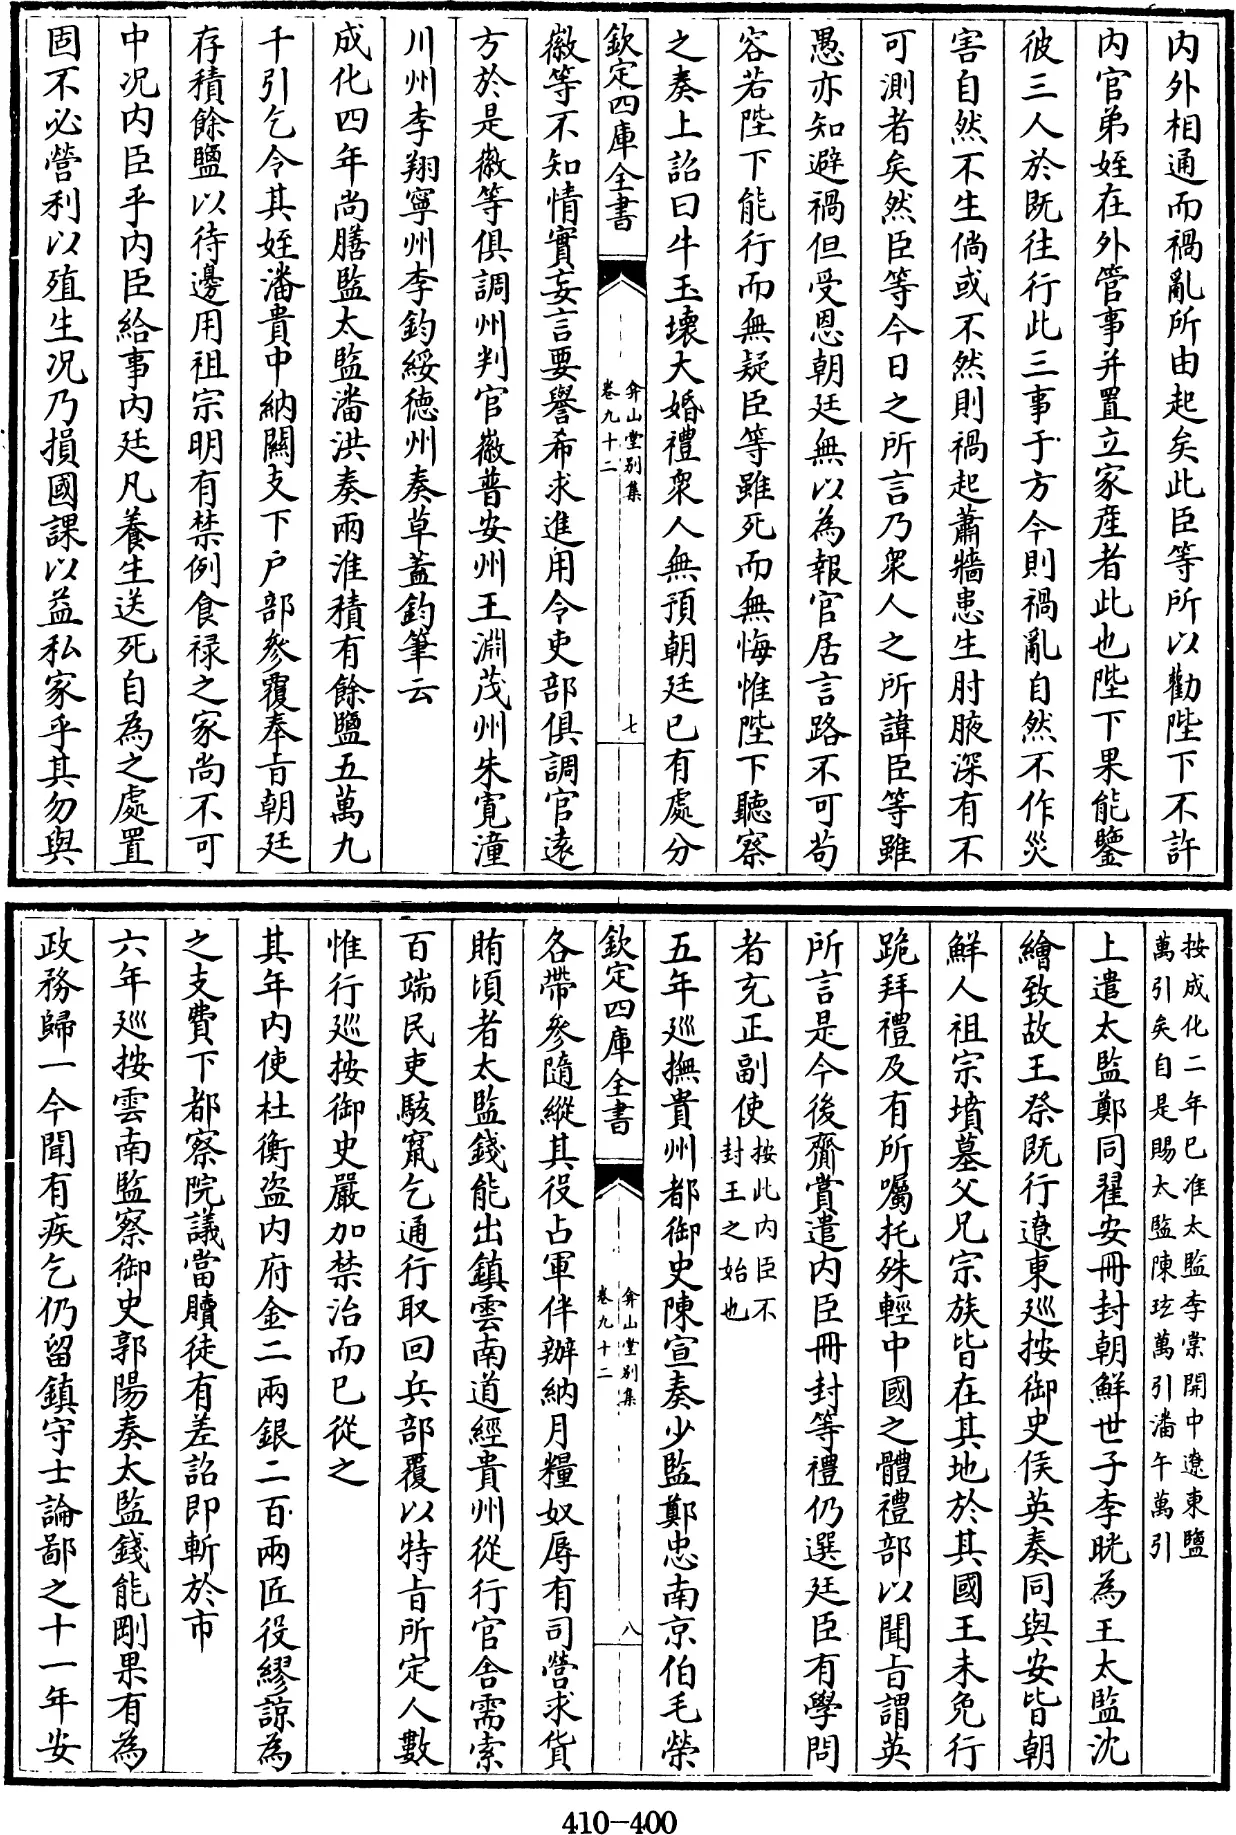 内外相通而禍亂所由起矣此臣等所以勸陛下不許
内官弟姪在外管事并置立家産者此也陛下果能鑒
彼三人於既往行此三事于方今則禍亂自然不作災
害自然不生倘或不然則禍起蕭牆患生肘腋深有不
可測者矣然臣等今日之所言乃衆人之所諱臣等雖
愚亦知避禍但受恩朝廷無以為報官居言路不可茍
容若陛下能行而無疑臣等雖死而無悔惟陛下聽察
之奏上詔曰牛玉壞大婚禮衆人無預朝廷已有處分
欽定四庫全書
弇山堂别集
卷九十二
七
徽等不知情實妄言要譽希求進用令吏部俱調官遠
方於是徽等俱調州判官徽普安州王淵茂州朱寛潼
川州李翔寧州李鈞綏徳州奏草蓋鈞筆云
成化四年尚膳監太監潘洪奏兩淮積有餘鹽五萬九
千引乞令其姪潘貴中納關支下户部參覆奉㫖朝廷
存積餘鹽以待邊用祖宗明有禁例食禄之家尚不可
中况内臣乎内臣給事内廷凡養生送死自為之處置
固不必營利以殖生况乃損國課以益私家乎其勿與
按成化二年已准太監李棠開中遼東鹽
萬引矣自是賜太監陳玹萬引潘午萬引
上遣太監鄭同翟安冊封朝鮮世子李晄為王太監沈
繪致故王祭既行遼東廵按御史侯英奏同與安皆朝
鮮人祖宗墳墓父兄宗族皆在其地於其國王未免行
跪拜禮及有所囑托殊輕中國之體禮部以聞㫖謂英
所言是今後齎賞遣内臣冊封等禮仍選廷臣有學問
者充正副使
按此内臣不
封王之始也
五年廵撫貴州都御史陳宣奏少監鄭忠南京伯毛榮
欽定四庫全書
弇山堂别集
卷九十二
八
各帶參隨縱其役占軍伴辦納月糧奴辱有司營求貨
賄頃者太監錢能出鎮雲南道經貴州從行官舍需索
百端民吏駭竄乞通行取回兵部覆以特㫖所定人數
惟行廵按御史嚴加禁治而已從之
其年内使杜衡盗内府金二兩銀二百兩匠役繆諒為
之支費下都察院議當贖徒有差詔即斬於市
六年廵按雲南監察御史郭陽奏太監錢能剛果有為
政務歸一今聞有疾乞仍留鎮守士論鄙之十一年安
410-400